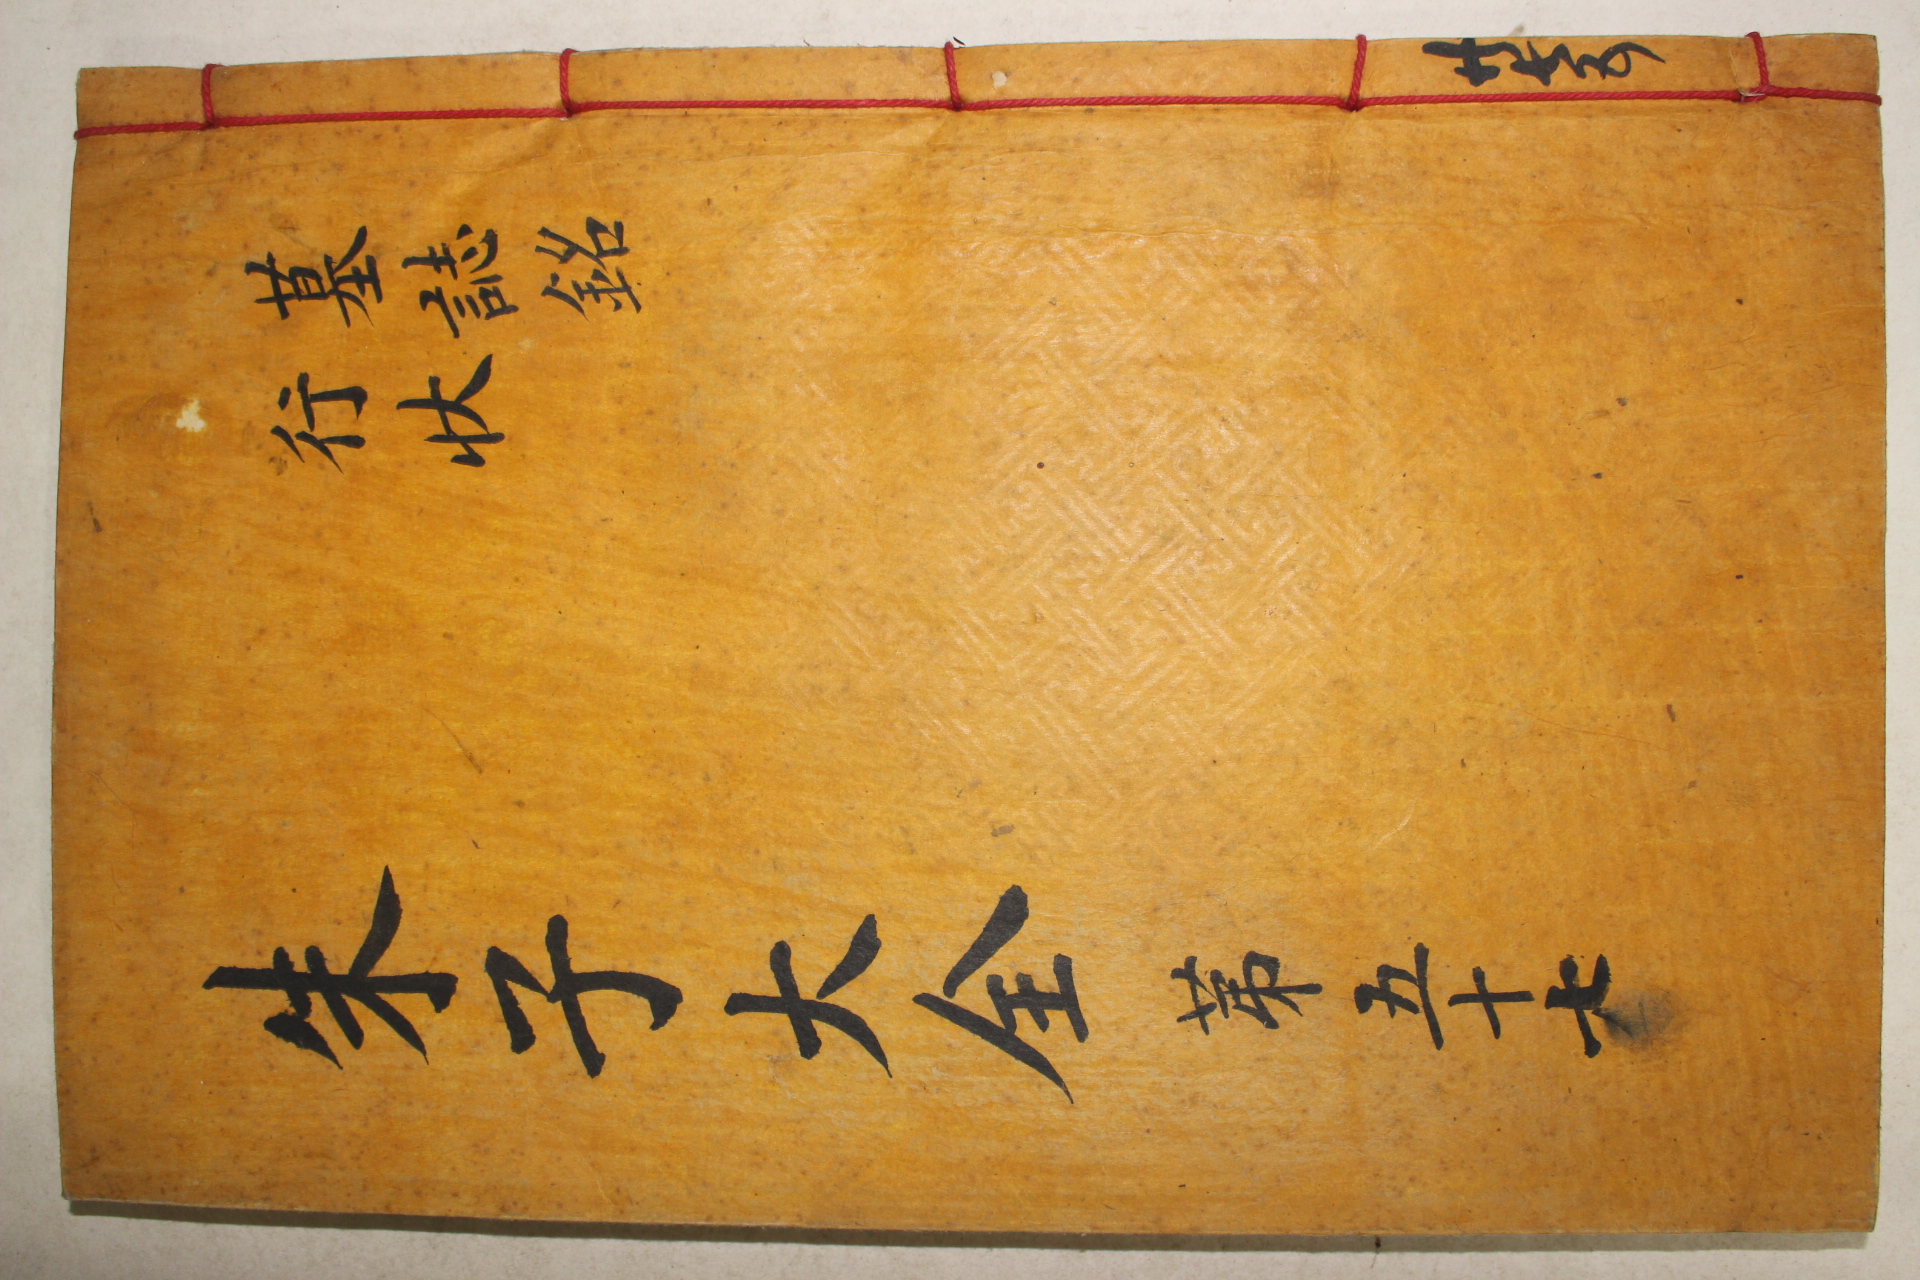 墓誌銘
行狀
朱子大全 第五十七